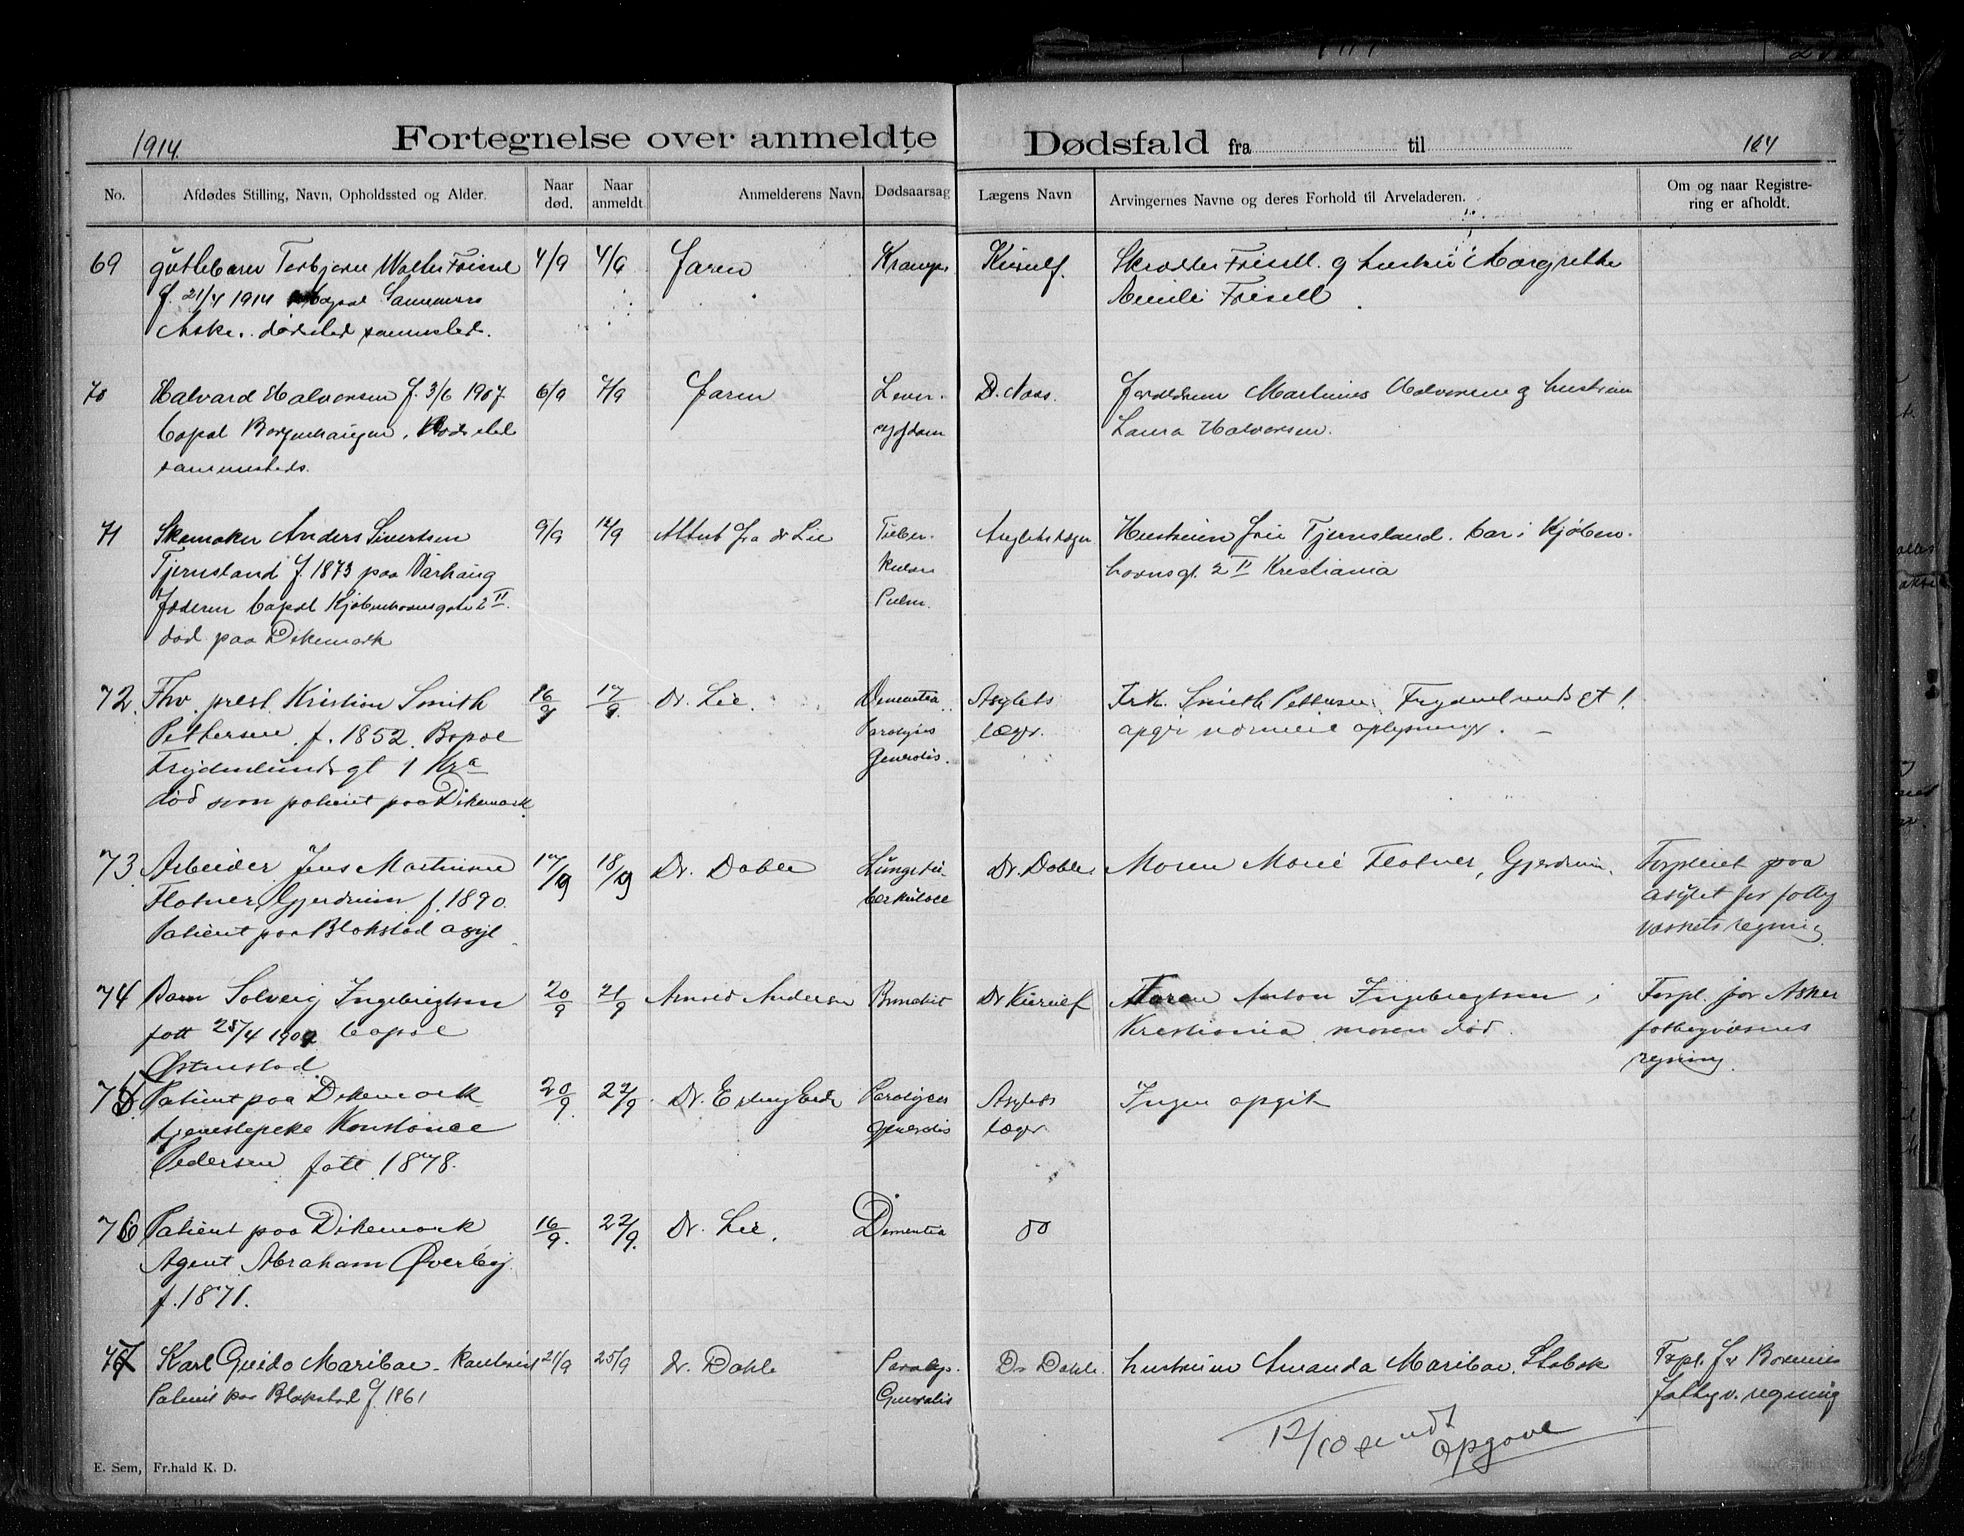 1914.
Fortegnelse over anmeldte Dødsfald fra til
164
No.
Afdødes Stilling, Navn, Opholdssted og Alder.
Naar død.
Naar anmeldt.
Anmelderens Navn
Dødsaarsag
Lægens Navn
Arvingernes Navne og deres Forhold til Arveladeren.
Om og naar Registrering er afholdt.
69
guttebarn Torbjørn Walter Frisell
f. 21/4 1914 bopæl
Asker. dødsted sammested.
4/9
4/9
Faren
Kramper
Kierulf.
Skrædder Frisell. og hustru Margrethe
Emilie Frisell
70
Halvard Halvorsen f. 3/6 1907
bopæl Borgenhaugen. Dødssted
sammesteds.
6/9
7/9
Faren
Lever.
sygdom
D. Naas.
Forældrene Martinius Halvorsen og hustru
Laura Halvorsen.
71
Skomaker Anders Sivertsen
Tjernsland f. 1873 paa Varhaug
Jæderen bopæl Kjøbenhavnsgate 2 II.
død paa Dikemark
9/9
12/9
Attest fra dr Lie
Tuber-
kulose
Pulm.
Asylets læge
Hustruen fru Tjernsland. bor i Kjøben-
havnsgt. 2 II Kristiania
72.
Fhv. prest Kristian Smith
Pettersen. f. 1852. Bopæl
Frydenlundsgt 1 Kra
død som patient paa Dikemark
16/9
17/9.
Dr. Lie.
Dementia
Paralyses
Generalis.
Asylets
læge.
Frk. Smith Pettersen. Frydenlundsgt 1.
opgir nærmere oplysninger. —
73.
Arbeider Jens Martinsen
Flatner, Gjerdrum f. 1890.
Patient paa Blakstad asyl
17/9
18/9
Dr. Dahle
Lungetu-
berkulose
Dr. Dahle
Moren Marie Flatner, Gjerdrum.
Forpleiet paa
asylet for fattig
væsnets regning
74
Barn Solveig Ingebrigtsen
født 25/4 1902 bopæl
Østenstad.
20/9
21/9
Arnold Andersen
Bronchit
Dr Kierulf
Faren Anton Ingebrigtsen i
Kristiania. moren død.
Forpl. for Asker
fattigvæsens
regning.
75
Patient paa Dikemark
tjenestepike Konstance
Pedersen. født 1878.
20/9.
22/9.
Dr.
Paralyses
generalis
Asylets
læge.
Ingen opgit
76
Patient paa Dikemark
Agent Abraham Øverby
f. 1871.
16/9.
22/9.
Dr. Lie.
Dementia
do
77
Karl Guido Maribae
Patient paa Blakstad f. 1861
21/9
25/9
dr. Dahle
Paralys.
Generalis
Dr Dahle.
hustruen Amanda Maribae. Stabæk
Forpl. for Bærums
fattigv. regning
12/10 sendt
opgave
E. Sem, Fr.hald K. D.